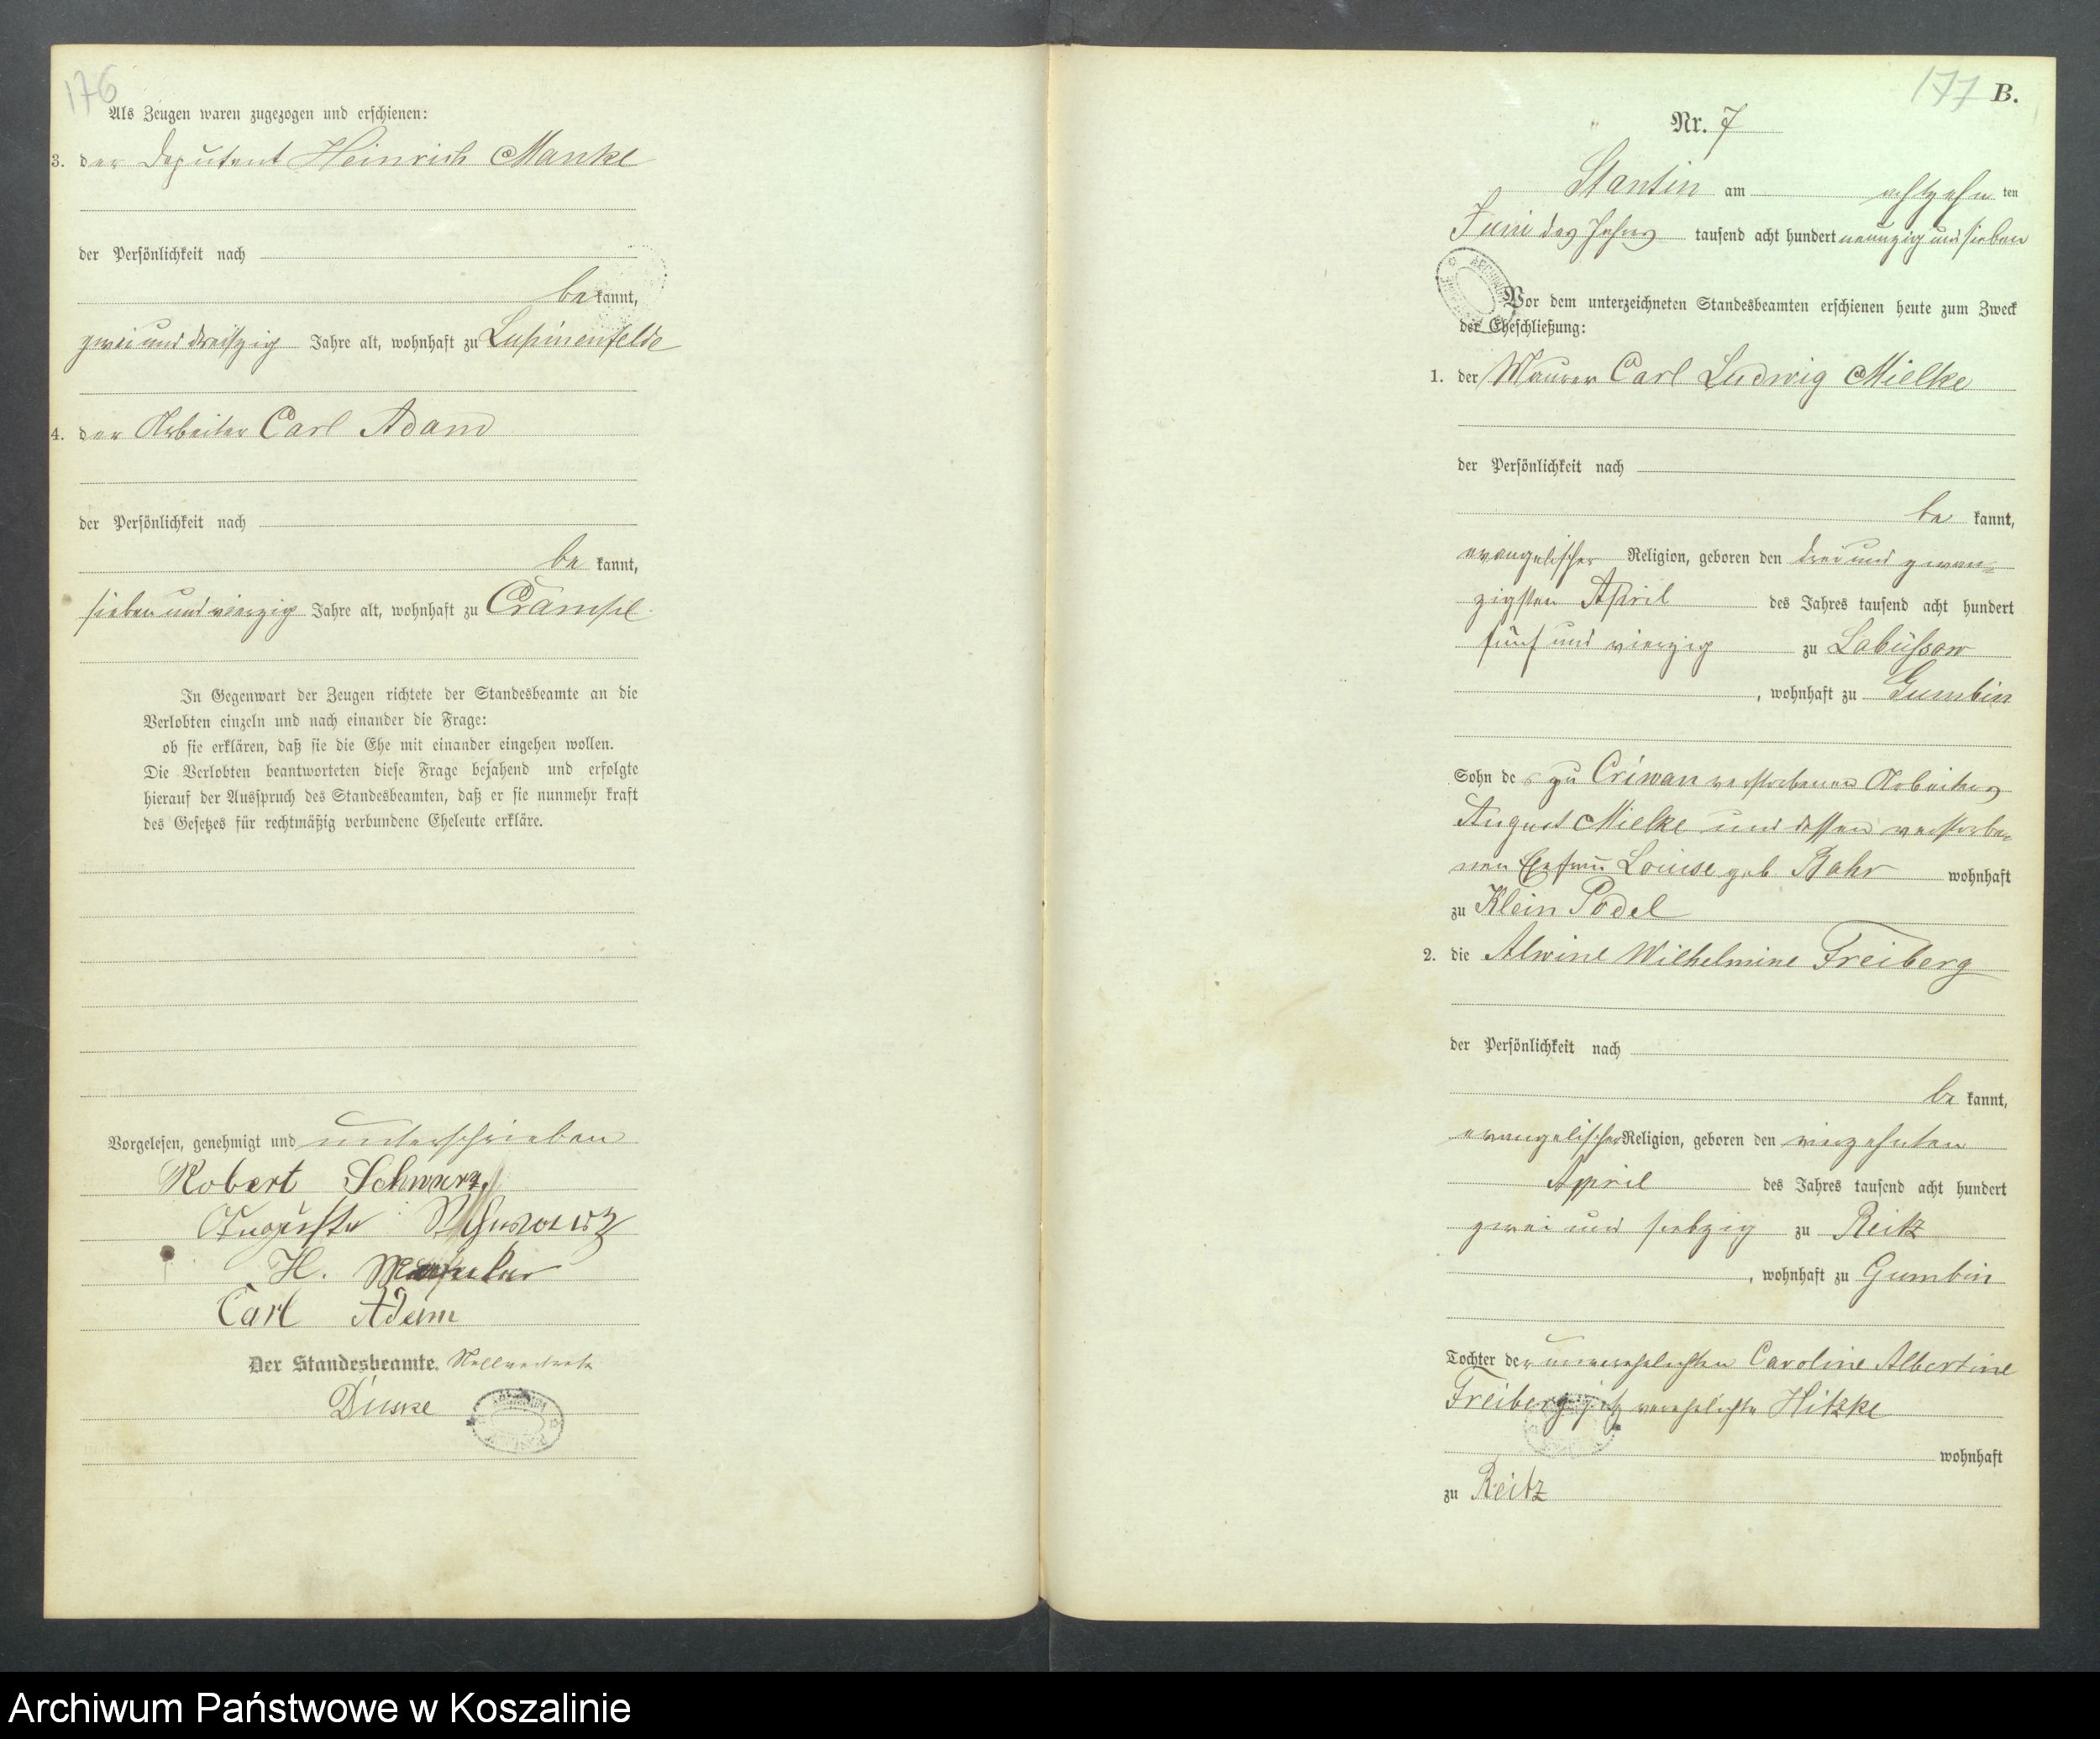 176
Als Zeugen waren zugezogen und erschienen:
3. der Deputant Heinrich Manke
der Persönlichkeit nach
be kannt,
zwei und dreißig Jahre alt, wohnhaft zu Lupinenfelde
4. der Arbeiter Carl Adam
der Persönlichkeit nach
be kannt,
sieben und vierzig Jahre alt, wohnhaft zu Crampe
In Gegenwart der Zeugen richtete der Standesbeamte an die
Verlobten einzeln und nach einander die Frage:
ob sie erklären, daß sie die Ehe mit einander eingehen wollen.
Die Verlobten beantworteten diese Frage bejahend und erfolgte
hierauf der Ausspruch des Standesbeamten, daß er sie nunmehr kraft
des Gesetzes für rechtmäßig verbundene Eheleute erkläre.
Vorgelesen, genehmigt und unterschrieben
Robert Schwarz
Auguste
H.
Carl Adam
Der Standesbeamte.
177 B.
Nr. 7
Stantin am achtzehn ten
Juni des Jahres tausend acht hundert neunzig und sieben
Vor dem unterzeichneten Standesbeamten erschienen heute zum Zweck
der Eheschließung:
1. der Maurer Carl Ludwig Mielke
der Persönlichkeit nach
be kannt,
evangelischer Religion, geboren den drei und zwan=
zigsten April des Jahres tausend acht hundert
fünf und vierzig zu Labüssow
, wohnhaft zu Gumbin
Sohn des zu Criwan verstorbenen Arbeiters
August Mielke und dessen verstorbe=
nen Ehefrau Louise geb. Bahr wohnhaft
zu Klein Podel
2. die Alwine Wilhelmine Freiberg
der Persönlichkeit nach
be kannt,
evangelischer Religion, geboren den vierzehnten
April des Jahres tausend acht hundert
zwei und siebzig zu Reitz
, wohnhaft zu Gumbin
Tochter der unverehelichten Caroline Albertine
Freiberg jetzt verehelichte Hitzke
wohnhaft
zu Reitz
Archiwum Państwowe w Koszalinie